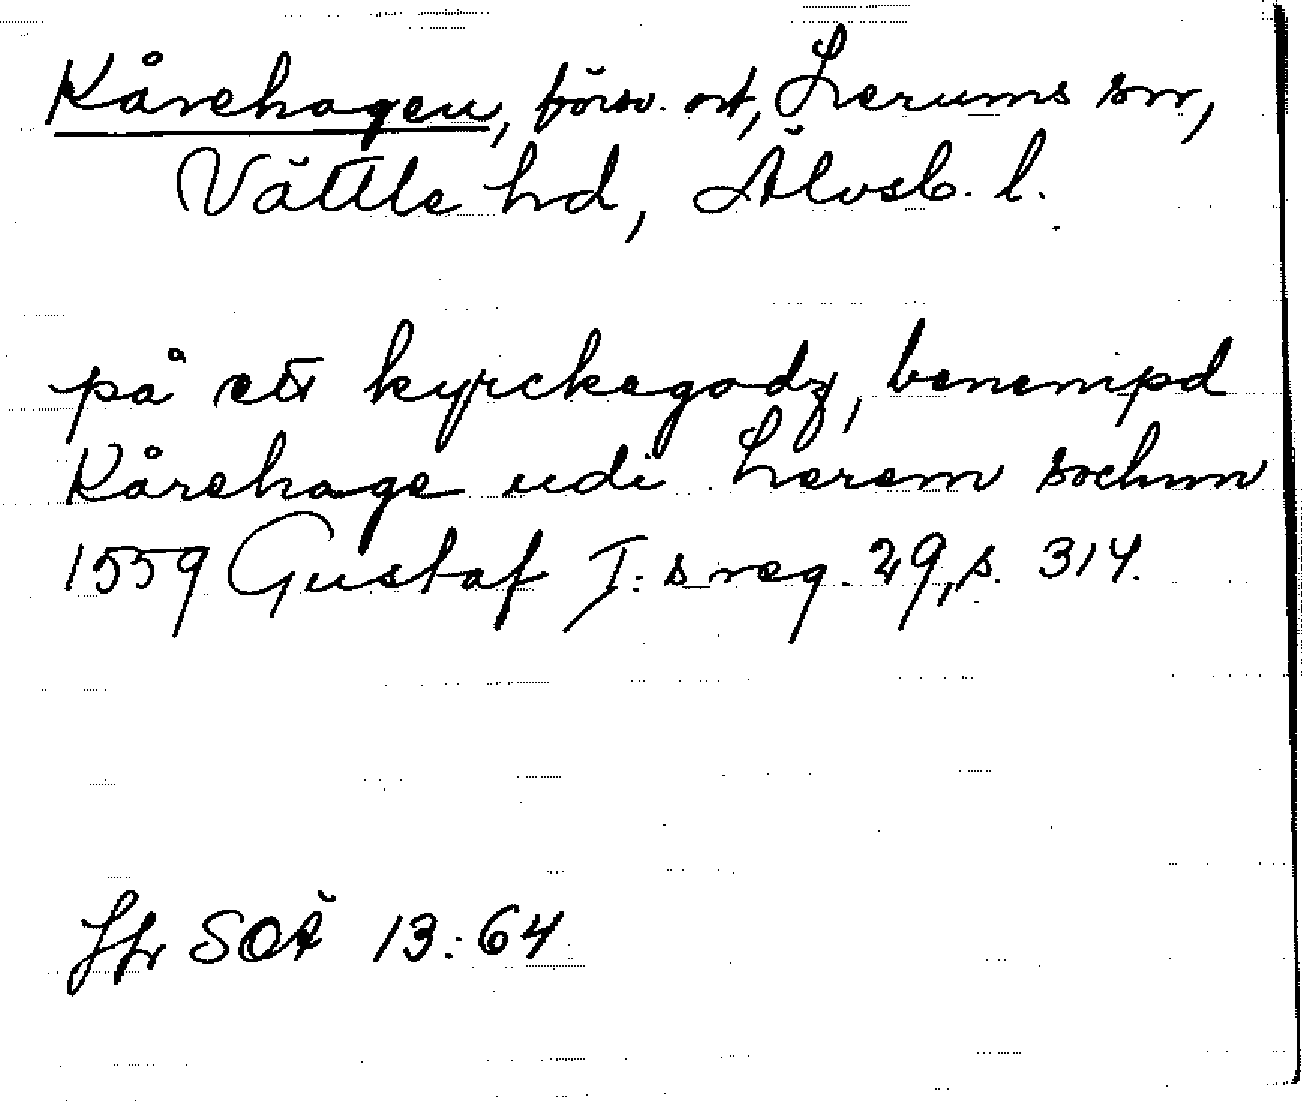 Kårehagen, försv. ort, Lerums sn,
Vättle hd, Älvsb. l.
på ett kyrckegodz, benempd
Kårehage udi Lerem sochnn
1559 Gustaf I:s reg. 29, s. 314.
Jfr SOÄ 13:64